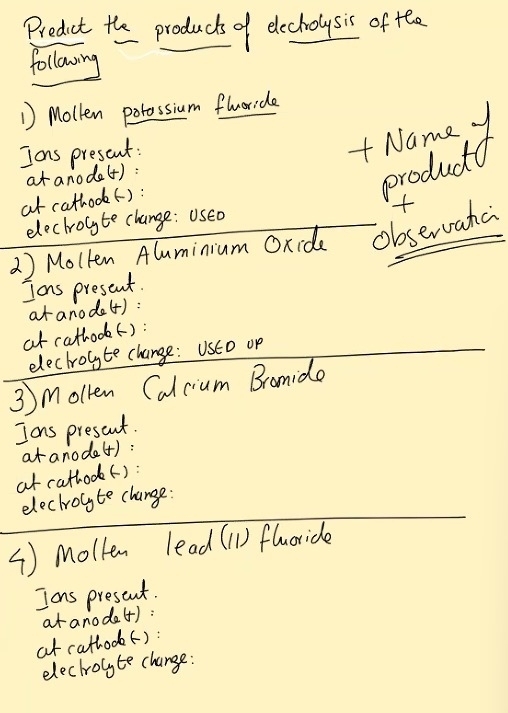 Predict the products of electrolysis of the
following
1) Molten potassium fluoride
Ions present:
at anode(+) :
at cathode(-) :
electrolyte change: USED
+ Name of
product
+
observation
2) Molten Aluminium Oxide
Ions present.
at anode(+) :
at cathode(-) :
electrolyte change: USED UP
3) Molten Calcium Bromide
Ions present.
at anode(+) :
at cathode(-) :
electrolyte change:
4) Molten lead (II) fluoride
Ions present.
at anode(+) :
at cathode(-) :
electrolyte change: